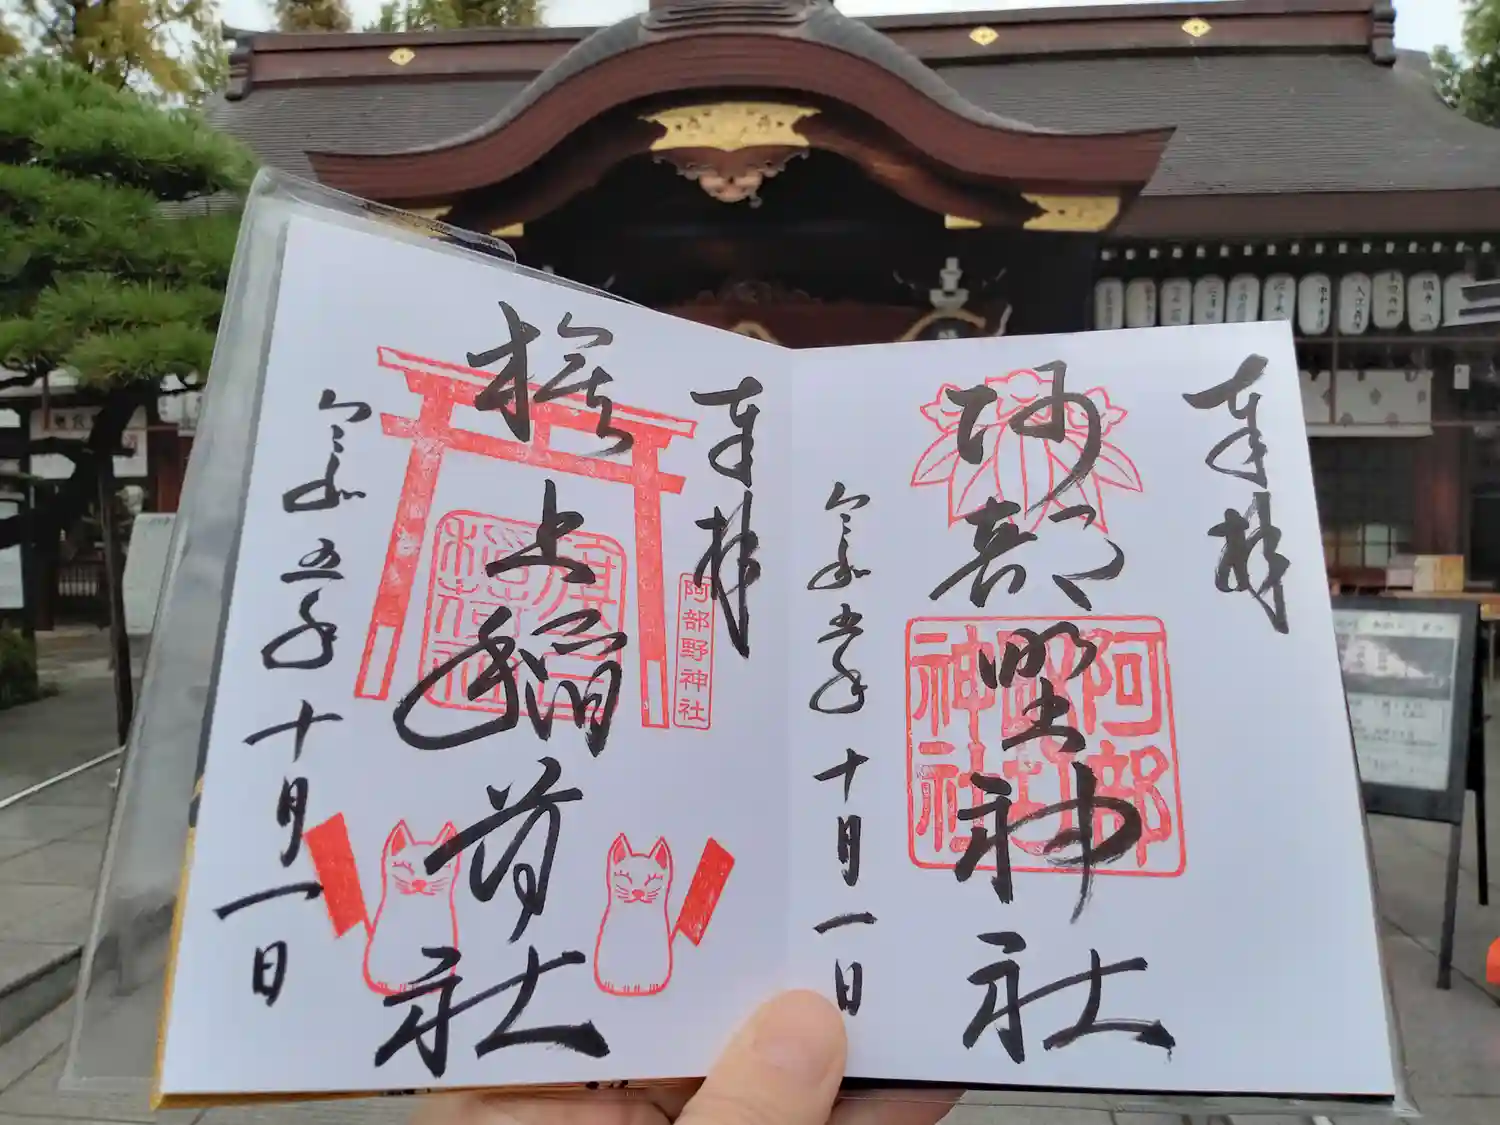 奉拝
阿部野神社
阿部野神社
令和五年十月一日
奉拝
阿部野神社
旗上稲荷社
令和五年十月一日